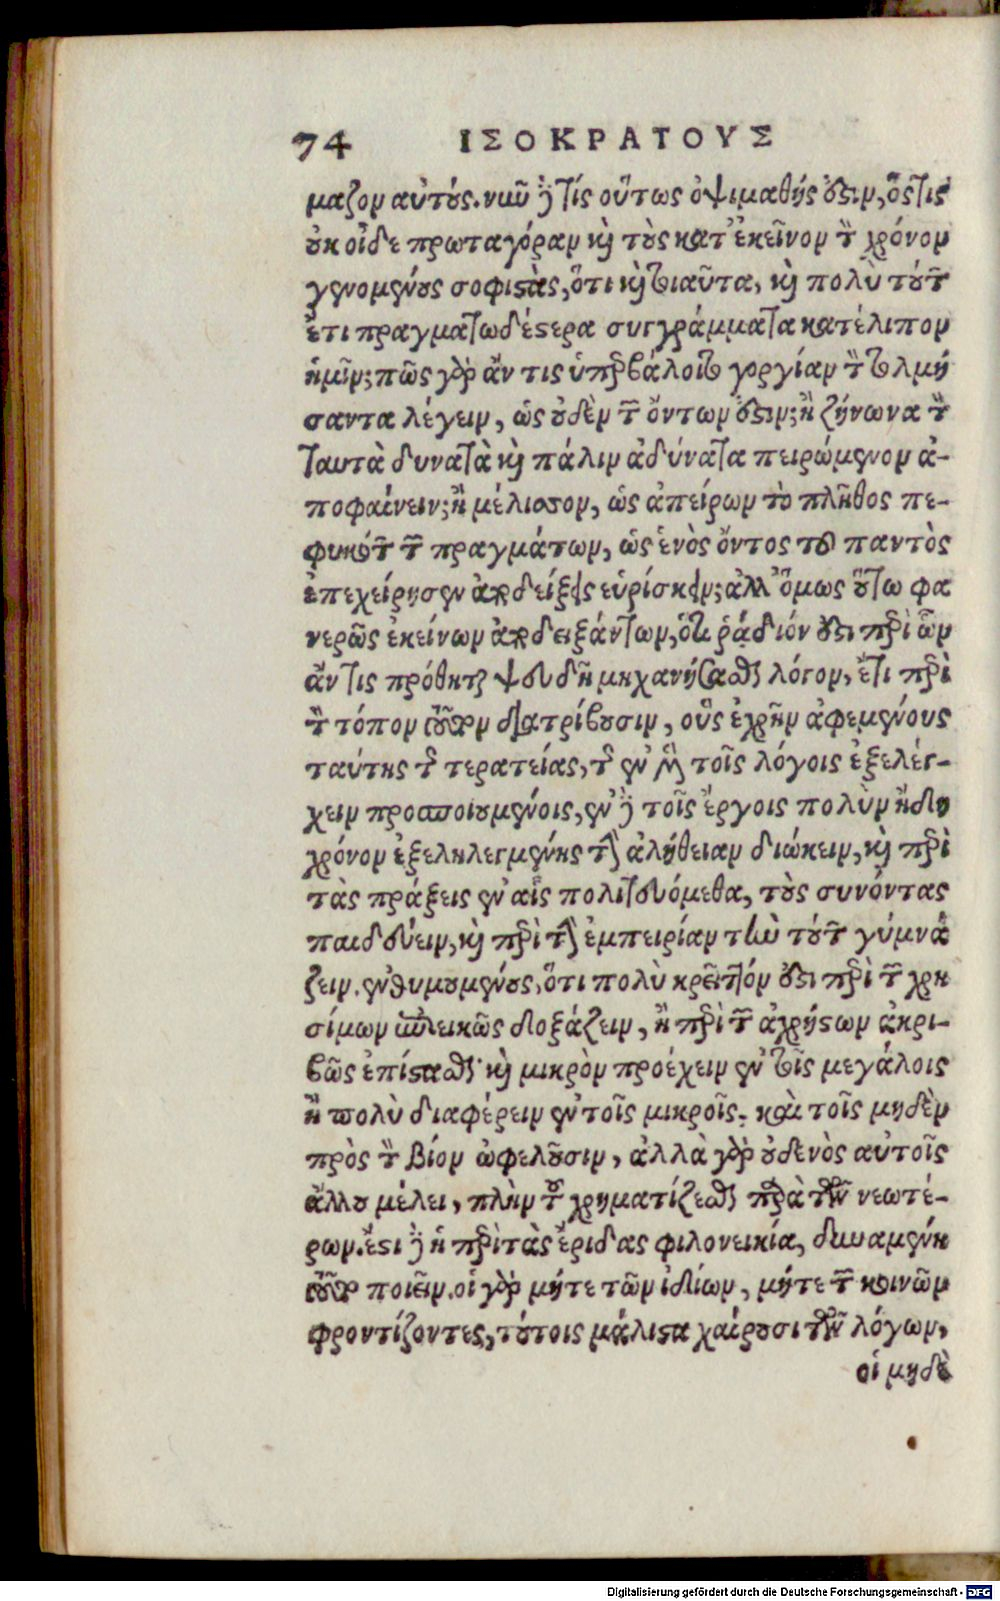 74 ΙΣΟΚΡΑΤΟΥΣ
μαζον αὐτούς. νῦν δέ τίς οὕτως ὀψιμαθής ἐστιν, ὅστις
οὐκ οἶδε πρωταγόραν καὶ τοὺς κατ' ἐκεῖνον τὸν χρόνον
γενομένους σοφιστὰς, ὅτι καὶ τοιαῦτα, καὶ πολὺ τούτων
ἔτι πραγματωδέστερα συγγράμματα κατέλιπον
ἡμῖν; πῶς γὰρ ἄν τις ὑπερβάλοιτο γοργίαν τὸν τολμή
σαντα λέγειν, ὡς οὐδὲν τῶν ὄντων ἐστιν; ἢ ζήνωνα τὸν
ταυτὰ δυνατὰ καὶ πάλιν ἀδύνατα πειρώμενον ἀ-
ποφαίνειν; ἢ μέλισσον, ὡς ἀπείρων τὸ πλῆθος πε-
φυκότων τῶν πραγμάτων, ὡς ἑνὸς ὄντος τοῦ παντὸς
ἐπεχείρησεν ἀποδείξεις εὑρίσκειν; ἀλλ' ὅμως οὕτω φα
νερῶς ἐκείνων ἀποδειξάντων, ὅτι ῥᾴδιόν ἐστι περὶ ὧν
ἄν τις πρόθηται ψευδῆ μηχανήσασθαι λόγον, ἔτι περὶ
τὸν τόπον τοῦτον διατρίβουσιν, οὓς ἐχρῆν ἀφεμένους
ταύτης τῆς τερατείας, τῆς ἐν μὲν τοῖς λόγοις ἐξελέγ-
χειν προσποιουμένοις, ἐν δὲ τοῖς ἔργοις πολὺν ἤδη
χρόνον ἐξεληλεγμένης τὴν ἀλήθειαν διώκειν, καὶ περὶ
τὰς πράξεις ἐν αἷς πολιτευόμεθα, τοὺς συνόντας
παιδεύειν, καὶ περὶ τὴν ἐμπειρίαν τὴν τούτων γυμνά
ζειν. ἐνθυμουμένους, ὅτι πολὺ κρεῖττόν ἐστι περὶ τῶν χρη
σίμων ἐπιεικῶς δοξάζειν, ἢ περὶ τῶν ἀχρήστων ἀκρι-
βῶς ἐπίστασθαι· καὶ μικρὸν προέχειν ἐν τοῖς μεγάλοις
ἢ πολὺ διαφέρειν ἐν τοῖς μικροῖς. καὶ τοῖς μηδὲν
πρὸς τὸν βίον ὠφελοῦσιν, ἀλλὰ γὰρ οὐδενὸς αὐτοῖς
ἄλλου μέλει, πλὴν τοῦ χρηματίζεσθαι παρὰ τῶν νεωτέ-
ρων. ἔστι δὲ ἡ περὶ τὰς ἔριδας φιλονεικία, δυναμένη
τοῦτο ποιεῖν. οἱ γὰρ μήτε τῶν ἰδίων, μήτε τῶν κοινῶν
φροντίζοντες, τούτοις μάλιστα χαίρουσι τῶν λόγων,
οἱ μηδὲ
Digitalisierung gefördert durch die Deutsche Forschungsgemeinschaft - DFG